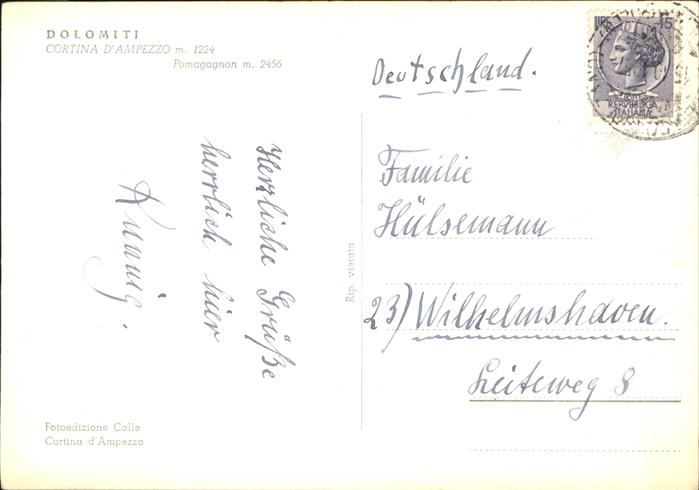 DOLOMITI
CORTINA D'AMPEZZO m. 1224
Pomagagnon m. 2456
Deutschland.
15
REPVBBLICA
ITALIANA
Herzliche Grüße
herrlich hier
Familie
Hülsemann
23) Wilhelmshaven.
Leiteweg 8
Rip. vietata
Fotoedizione Colle
Cortina d'Ampezzo